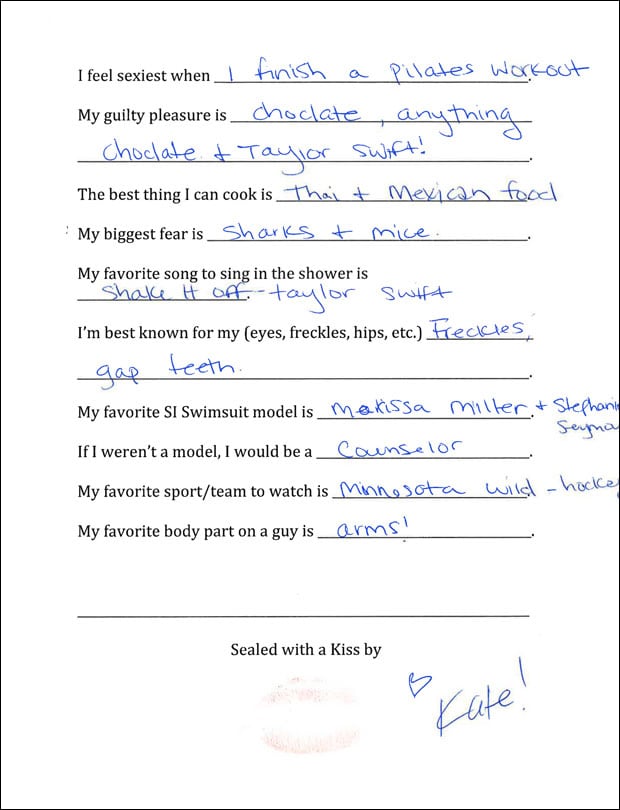 I feel sexiest when I finish a Pilates workout.
My guilty pleasure is choclate, anything
choclate & Taylor swift!.
The best thing I can cook is Thai + Mexican food
My biggest fear is sharks + mice..
My favorite song to sing in the shower is
shake it off.-taylor swift
I'm best known for my (eyes, freckles, hips, etc.) Freckles,
gap teeth..
My favorite SI Swimsuit model is Marissa Miller. + Stephanie
Seymo
If I weren't a model, I would be a Counselor.
My favorite sport/team to watch is Minnesota wild. - hockey
My favorite body part on a guy is arms!.
Sealed with a Kiss by
Kate!